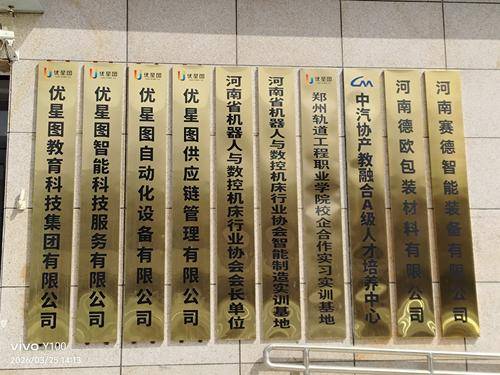 优星图
优星图教育科技集团有限公司
优星图
优星图智能科技服务有限公司
优星图
优星图自动化设备有限公司
优星图
优星图供应链管理有限公司
河南省机器人与数控机床行业协会会长单位
河南省机器人与数控机床行业协会智能制造实训基地
优星图
郑州轨道工程职业学院校企合作实习实训基地
CM
中汽协产教融合A级人才培养中心
河南德欧包装材料有限公司
河南赛德智能装备有限公司
vivo Y100
2026/03/25 14:13